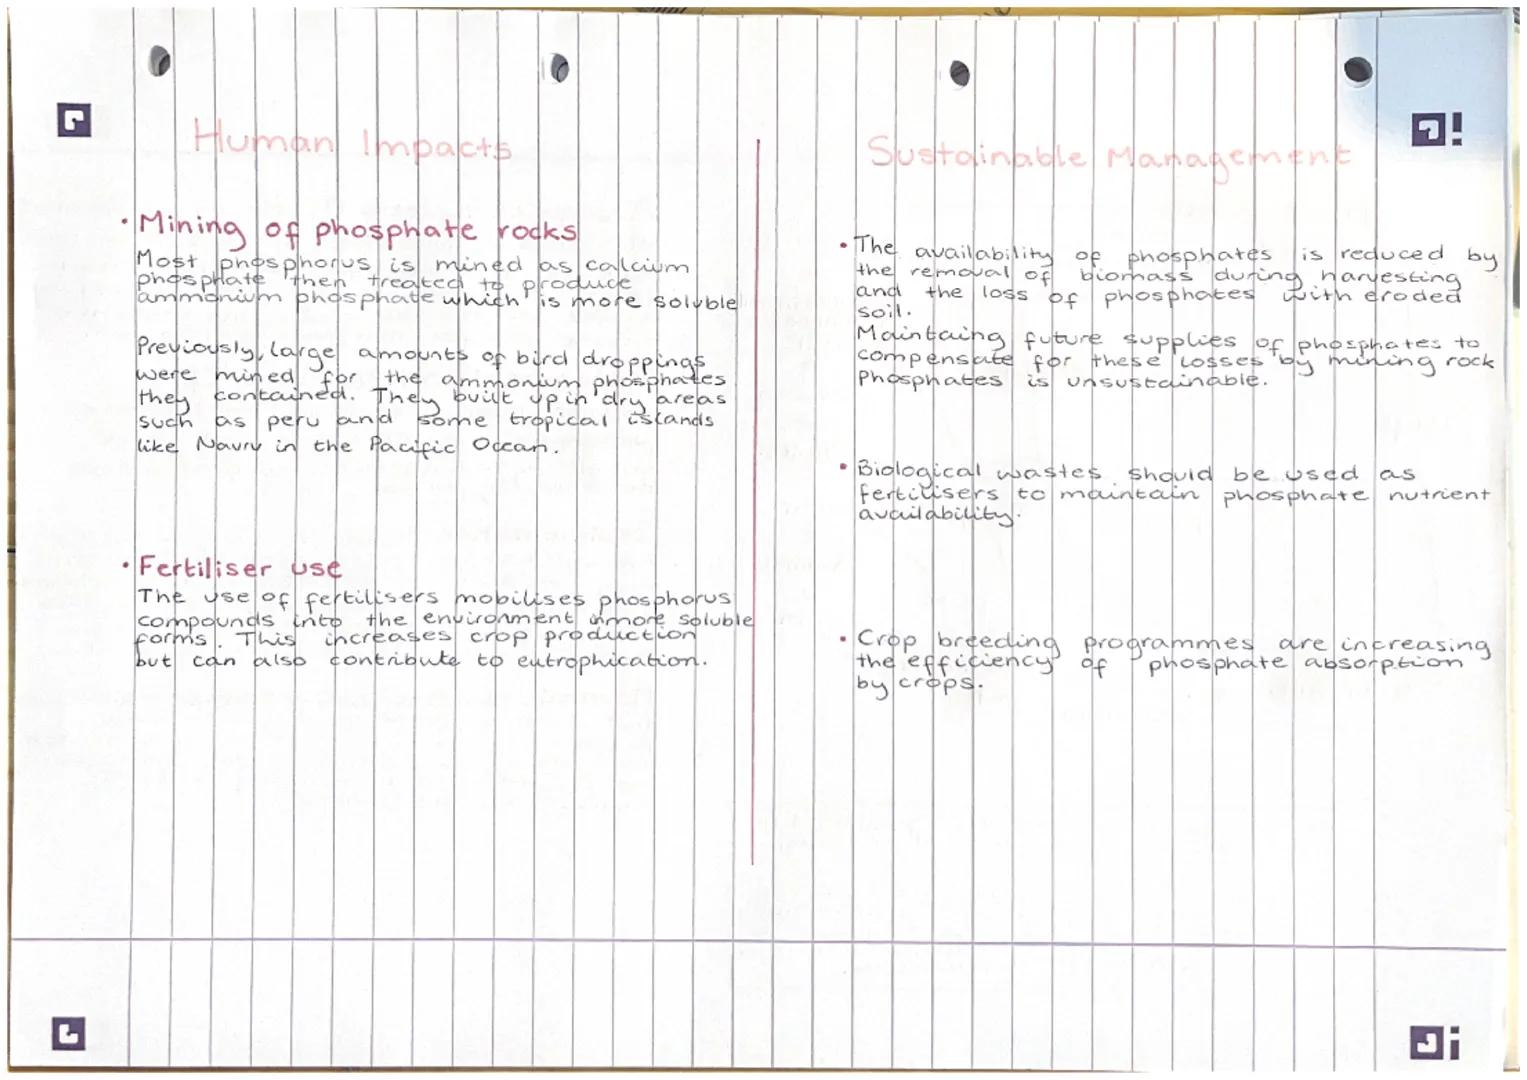 Human Impacts
• Mining of phosphate rocks
Most phosphorus is mined as calcium
phosphate then treated to produce
ammonium phosphate which is more soluble
Previously, large amounts of bird droppings
were mined for the ammonium phosphates
they contained. They built up in dry areas
such as peru and some tropical islands
like Nauru in the Pacific Ocean.
• Fertiliser use
The use of fertilisers mobilises phosphorus
compounds into the environment in more soluble
forms. This increases crop production
but can also contribute to eutrophication.
Sustainable Management
• The availability of phosphates is reduced by
the removal of biomass during harvesting
and the loss of phosphates with eroded
soil.
Maintaing future supplies of phosphates to
compensate for these losses by mining rock
Phosphates is unsustainable.
• Biological wastes should be used as
fertilisers to maintain phosphate nutrient
availability.
• Crop breeding programmes are increasing
the efficiency of phosphate absorption
by crops.